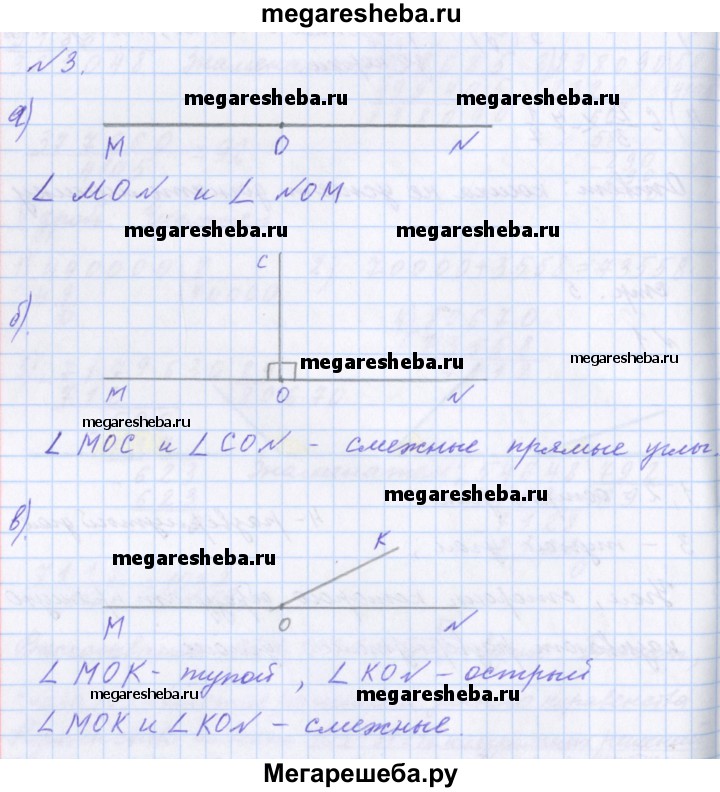 megaresheba.ru
№3.
megaresheba.ru megaresheba.ru
а)
M O N
∠ MON и ∠ NOM
megaresheba.ru megaresheba.ru
C
б).
megaresheba.ru megaresheba.ru
M O N
megaresheba.ru
∠ MOC и ∠ CON - смежные прямые углы.
megaresheba.ru
в).
K
megaresheba.ru
M O N
∠ MOK - тупой, ∠ KON - острый
megaresheba.ru megaresheba.ru
∠ MOK и ∠ KON - смежные.
Мегарешеба.ру